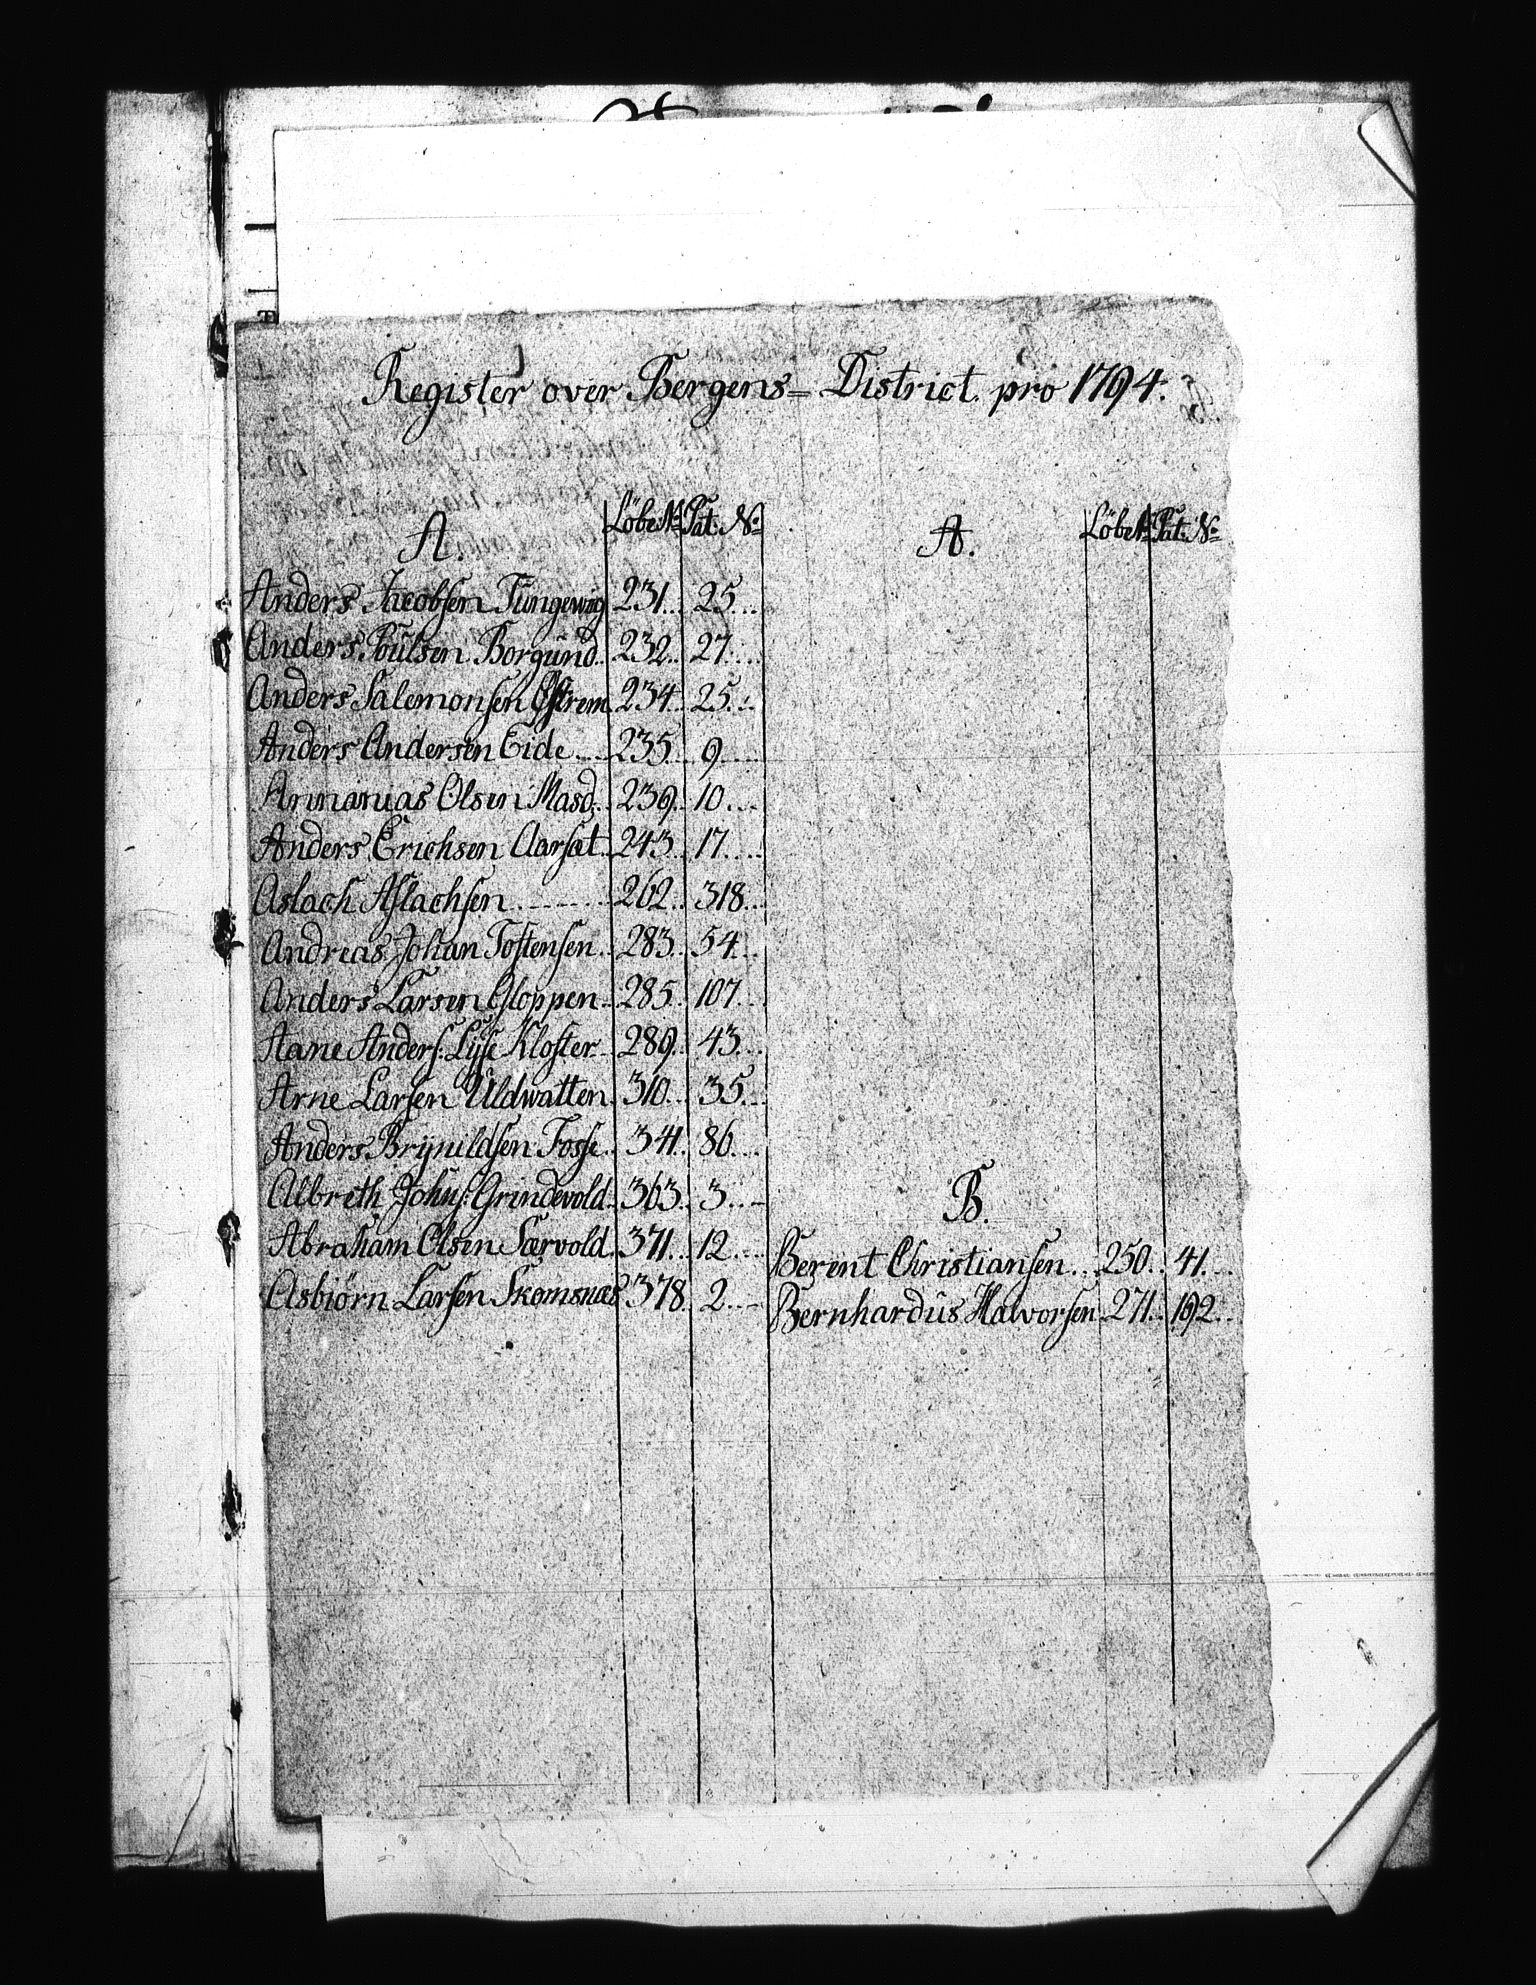 Register over Bergens= District pro 1794.
A. Löbe No Pat: No
Anders Jacobsen Tungewig 231 25
Anders Poulsen Borgund 232 27
Anders Salemonsen Østrem 234 25
Anders Andersen Eide 235 9
Annanias Olsen Masd 239 10
Anders Erichsen Aarsat 243 17
Aslach Aslachsen 262 318
Andreas Johan Tostensen 283 54
Anders Larsen Gloppen 285 107
Aame Anders: Lyse Kloster 289 43
Arne Larsen Uldwatten 310 35
Anders Brynildsen Fosse 341 86
Albreth Johns: Grindevold 363 3
Abraham Olsen Særvold 371 12
Asbiørn Larsen Skomsnæs 378 2
A. Löbe No Pat: No
B.
Berent Christiansen 250 41
Bernhardus Haworsen 271 192